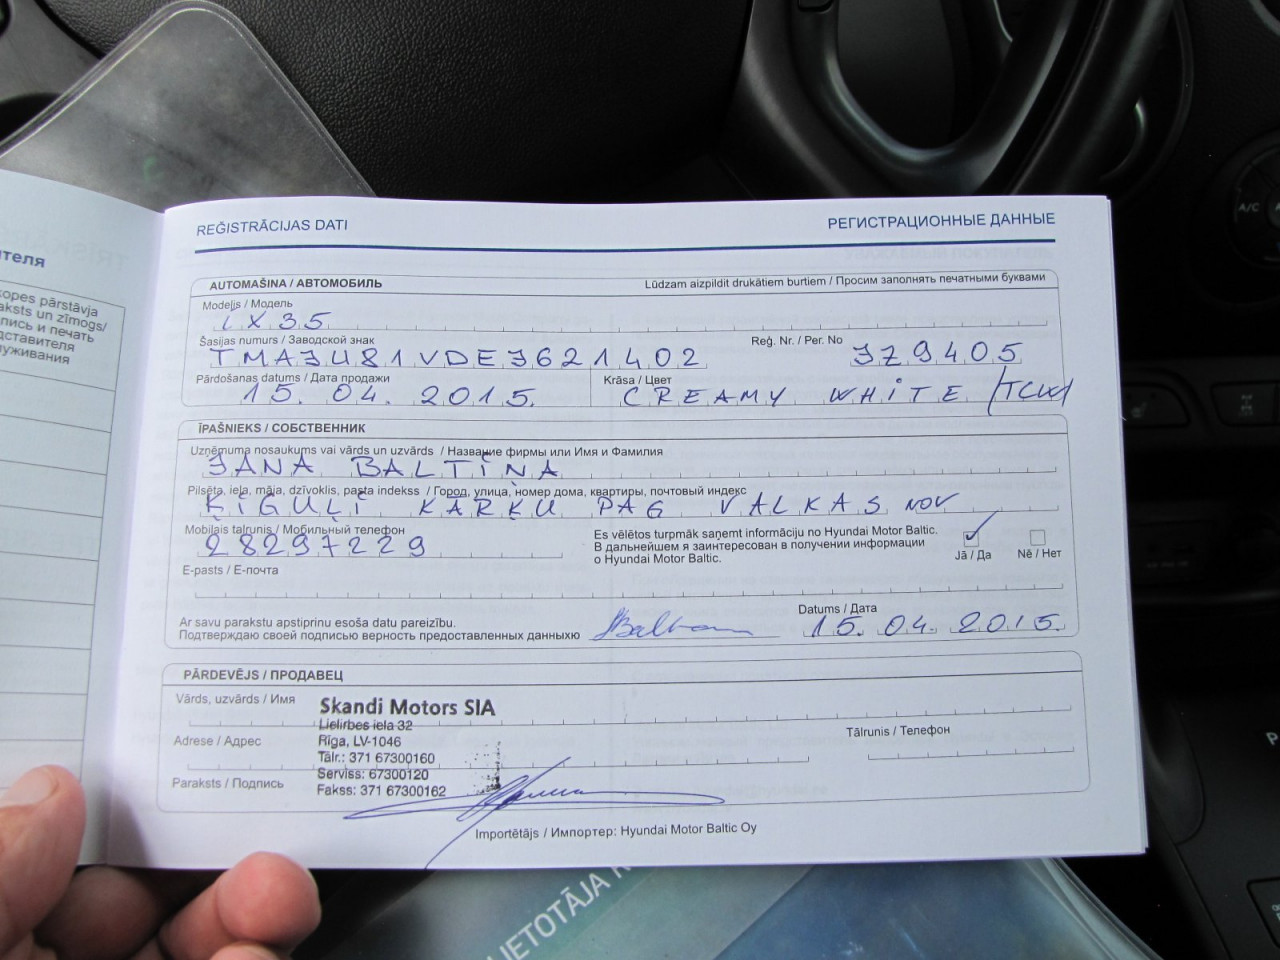 теля
opes pārstāvja
aksts un zīmogs/
пись и печать
дставителя
уживания
REĢISTRĀCIJAS DATI
РЕГИСТРАЦИОННЫЕ ДАННЫЕ
AUTOMAŠĪNA / АВТОМОБИЛЬ
Lūdzam aizpildīt drukātiem burtiem / Просим заполнять печатными буквами
Modelis / Модель
iX35
Šasijas numurs / Заводской знак
TMAJU81VDEJ621402
Reģ. Nr. / Рег. No
JZ9405
Pārdošanas datums / Дата продажи
15. 04. 2015.
Krāsa / Цвет
CREAMY WHITE /TCW/
ĪPAŠNIEKS / СОБСТВЕННИК
Uzņēmuma nosaukums vai vārds un uzvārds / Название фирмы или Имя и Фамилия
JANA BALTIŅA
Pilsēta, iela, māja, dzīvoklis, pasta indekss / Город, улица, номер дома, квартиры, почтовый индекс
ĶIGUĻI KĀRĶU PAG VALKAS NOV
Mobilais talrunis / Мобильный телефон
28297229
Es vēlētos turpmāk saņemt informāciju no Hyundai Motor Baltic.
В дальнейшем я заинтересован в получении информации
о Hyundai Motor Baltic.
Jā / Да
Nē / Нет
E-pasts / Е-почта
Ar savu parakstu apstiprinu esoša datu pareizību.
Подтверждаю своей подписью верность предоставленных данныхю
Datums / Дата
15. 04. 2015.
PĀRDEVĒJS / ПРОДАВЕЦ
Vārds, uzvārds / Имя
Skandi Motors SIA
Lielirbes iela 32
Adrese / Адрес
Rīga, LV-1046
Tālrunis / Телефон
Tālr.: 371 67300160
Serviss: 67300120
Paraksts / Подпись
Fakss: 371 67300162
Importētājs / Импортер: Hyundai Motor Baltic Oy
LIETOTĀJA
A/C